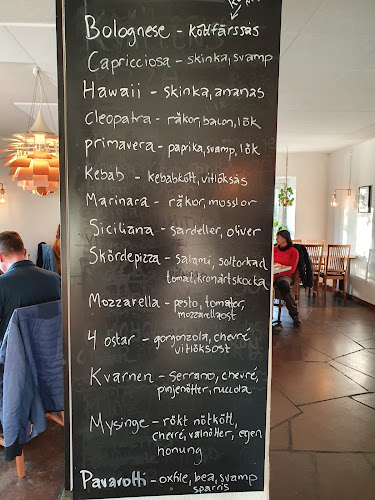 Bolognese - köttfärssås
Capricciosa - skinka, svamp
Hawaii - skinka, ananas
Cleopatra - räkor, bacon, lök
primavera - paprika, svamp, lök
Kebab - kebabkött, vitlöksås
Marinara - räkor, musslor
Siciliana - sardeller, oliver
Skördepizza - salami, soltorkad
tomat, kronärtskocka
Mozzarella - pesto, tomater,
mozzarellaost
4 ostar - gorgonzola, chevré
vitlöksost
Kvarnen - serrano, chevré,
pinjenötter, ruccola
Mysinge - rökt nötkött,
chevré, valnötter, egen
honung
Pavarotti - oxfile, bea, svamp
sparris